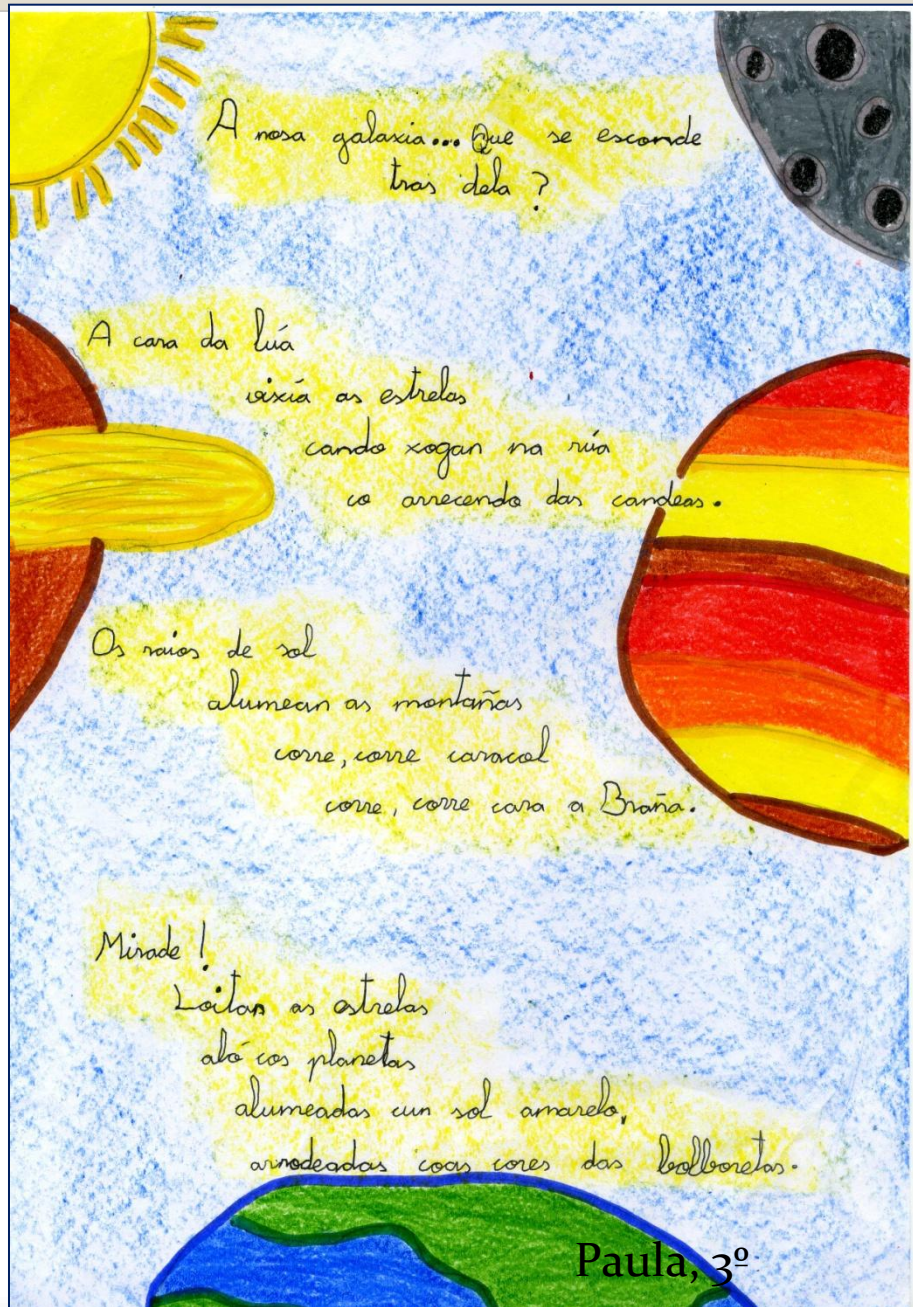 A nosa galaxia... Que se esconde
tras dela ?
A cara da lúa
vixía as estrelas
cando xogan na rúa
co arrecendo das candeas.
Os raios de sol
alumean as montañas
corre, corre caracol
corre, corre cara a Braña.
Mirade !
Loitan as estrelas
aló cos planetas
alumeadas cun sol amarelo,
arrodeadas coas cores das bolboretas.
Paula, 3º